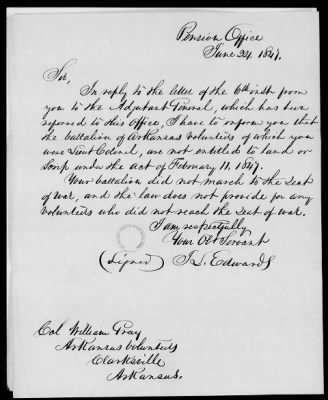 Pension Office
June 24, 1847.
Sir,
In reply to the letter of the 6th inst from
you to the Adjutant General, which has been
referred to this Office, I have to inform you that
the battalion of Arkansas volunteers of which you
were Lieut Colonel, are not entitled to land or
Scrip under the act of February 11, 1847.
Your battalion did not march to the Seat
of war, and the law does not provide for any
volunteers who did not reach the Seat of war.
I am respectfully
Your Obt Servant
(Signed) J. L. Edwards
Col William Gray
Arkansas Volunteers
Clarksville
Arkansas.